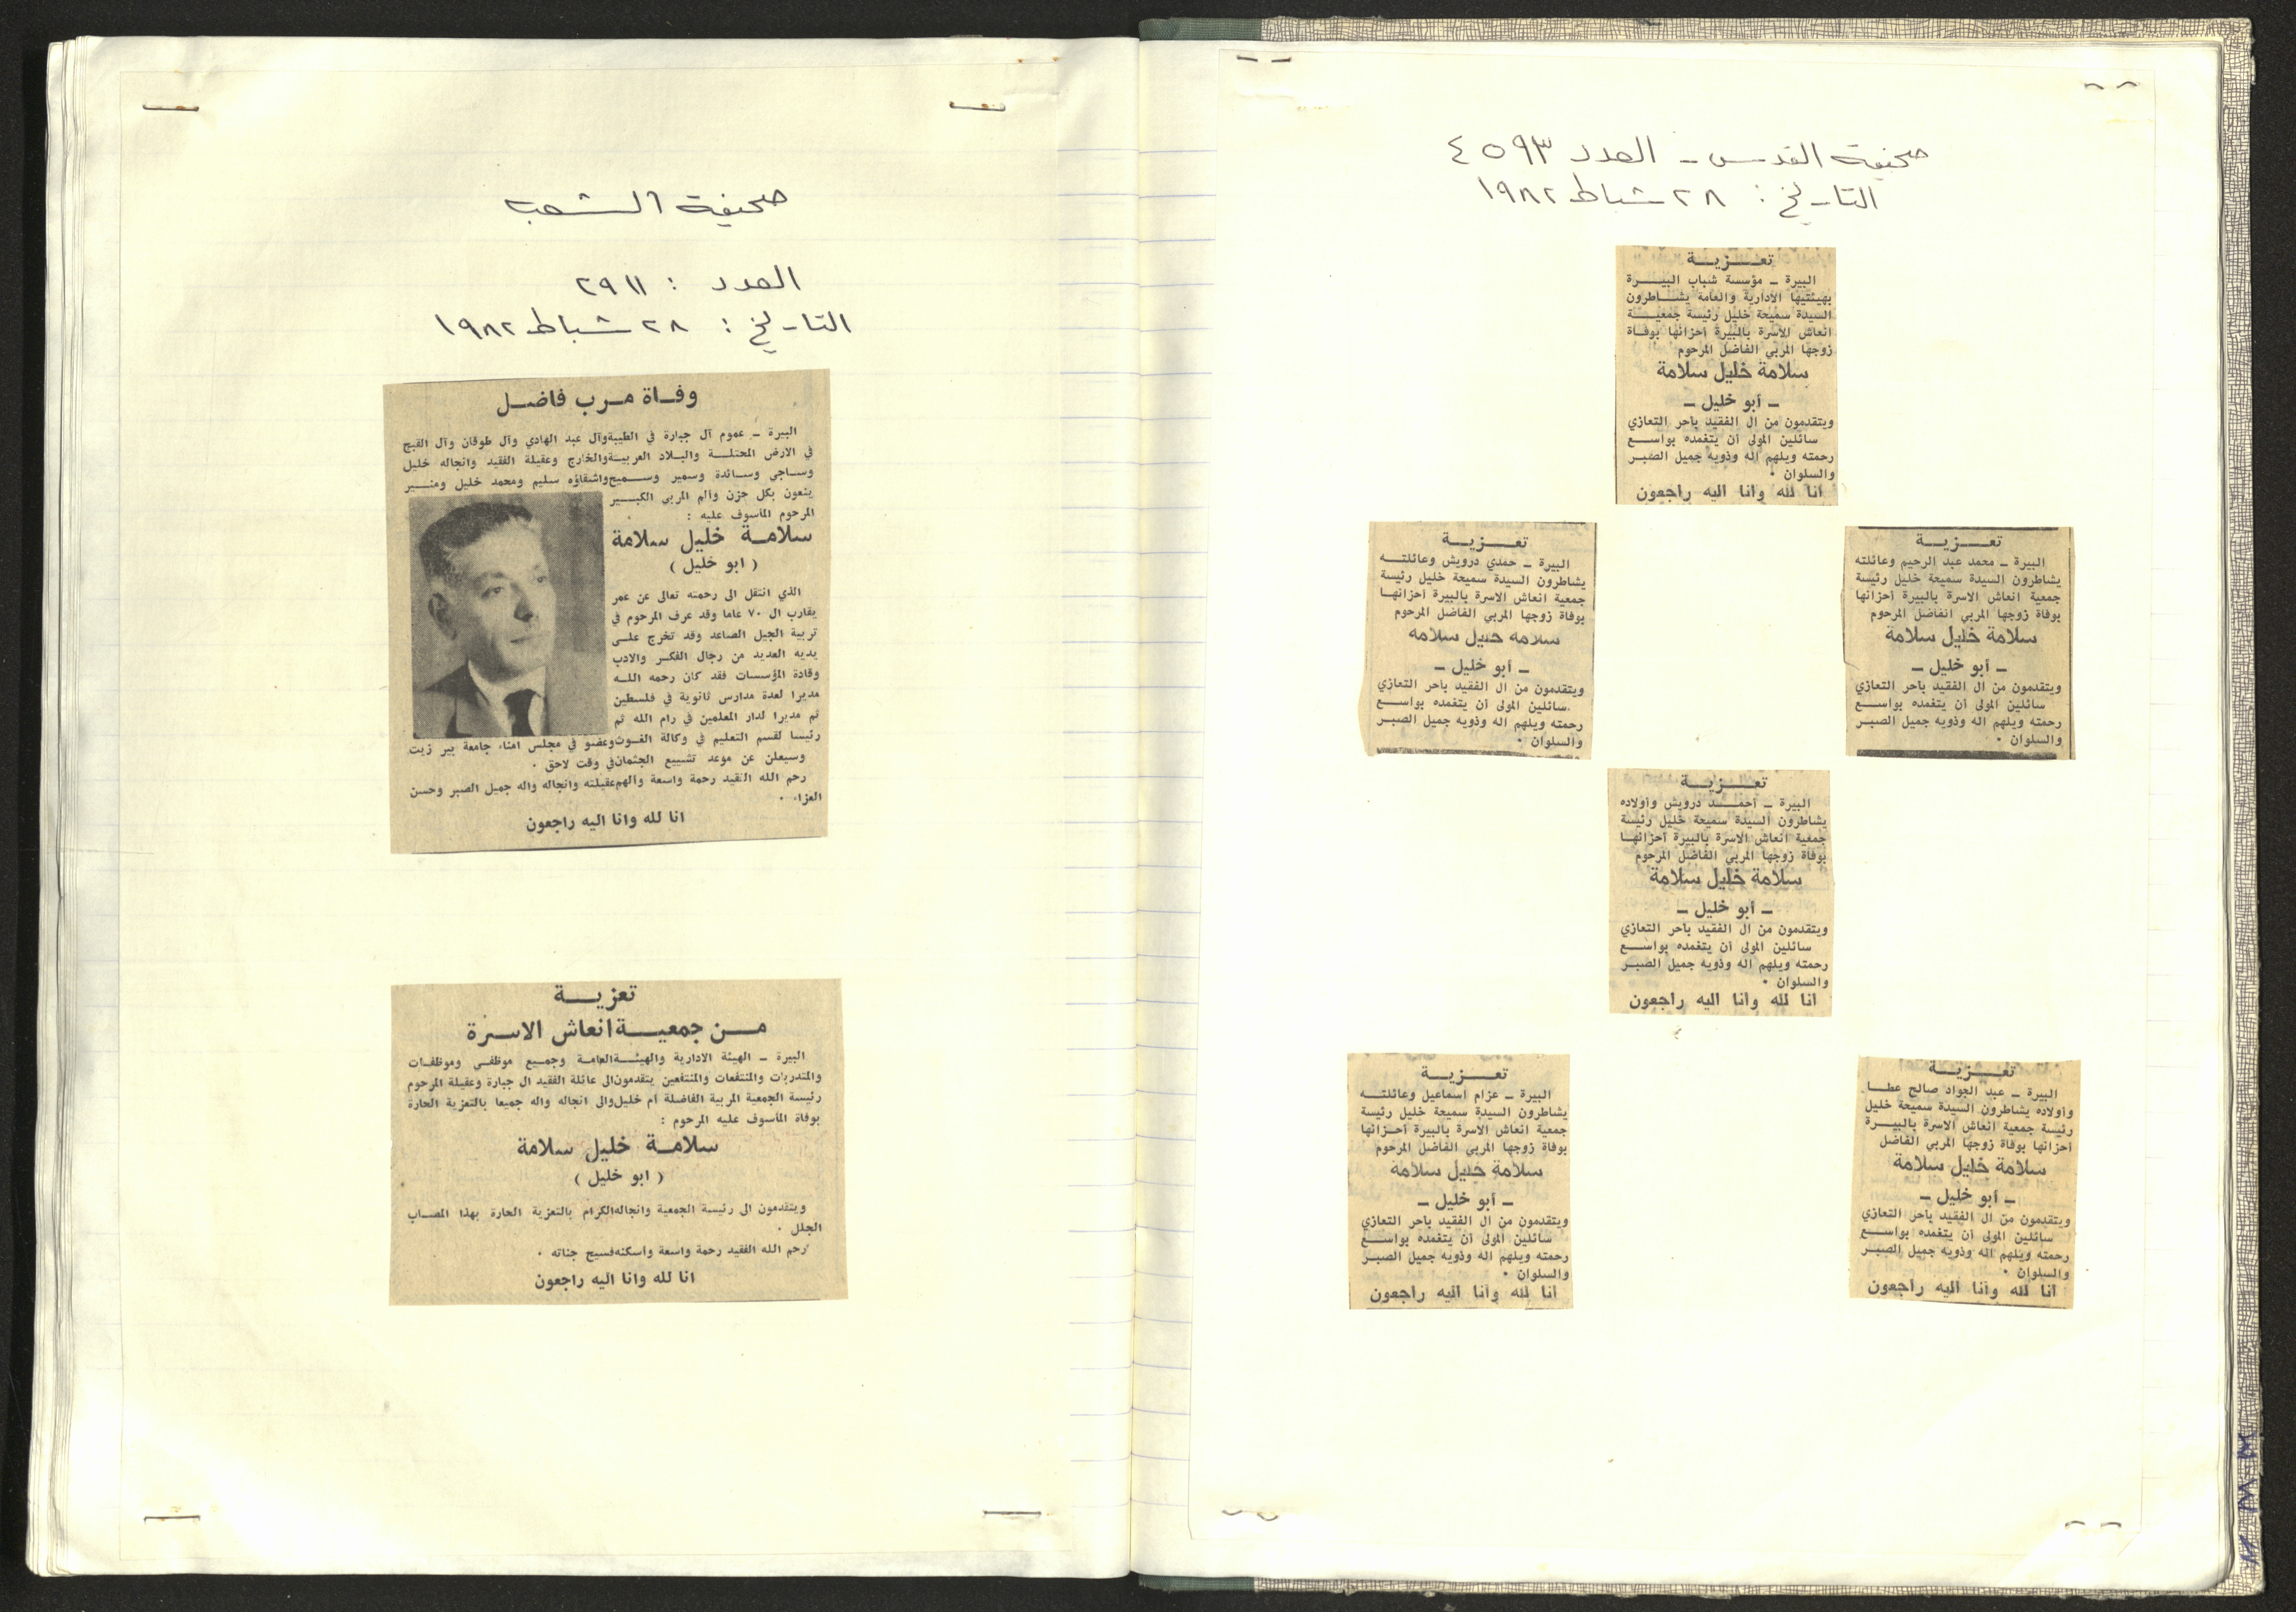 صحيفة الشعب
العدد : ٢٩١١
التاريخ : ٢٨ شباط ١٩٨٢
وفـاة مـرب فاضـل
البيرة – عموم آل جبارة في الطيبة وآل عبد الهادي وآل طوقان وآل القبج
في الارض المحتلـة والبـلاد العربيـة والخارج وعقيلة الفقيد وانجاله خليل
وسـاجي وسـائدة وسمير وسـميح واشقاؤه سليم ومحمد خليل ومنـير
ينعون بكل حزن وألم المربي الكبـير
المرحوم المأسوف عليه :
سلامـة خليل سلامة
( ابو خليل )
الذي انتقل الى رحمته تعالى عن عمر
يقارب ال ٧٠ عاما وقد عرف المرحوم في
تربية الجيل الصاعد وقد تخرج علـى
يديه العديد من رجال الفكـر والادب
وقادة المؤسسات فقد كان رحمه اللـه
مديرا لعدة مدارس ثانوية في فلسطين
ثم مديرا لدار المعلمين في رام الله ثم
رئيسا لقسم التعليم في وكالة الغـوث وعضو في مجلس امناء جامعة بير زيت
وسيعلن عن موعد تشييع الجثمان في وقت لاحق .
رحم الله الفقيد رحمة واسعة وألهم عقيلته وانجاله وآله جميل الصبر وحسن
العزاء .
انا لله وانا اليه راجعون
تعزيـة
مـن جمعيـة انعاش الاسـرة
البيرة – الهيئة الادارية والهيئـة العامـة وجمـيع موظفـي وموظفـات
والمتدربات والمنتفعات والمنتفعين يتقدمون الى عائلة الفقيد ال جبارة وعقيلة المرحوم
رئيسة الجمعية المربية الفاضلة أم خليل والى انجاله وآله جميعا بالتعزية الحارة
بوفاة المأسوف عليه المرحوم :
سلامـة خليل سلامة
( ابو خليل )
ويتقدمون الى رئيسة الجمعية وانجاله الكرام بالتعزية الحارة بهذا المصـاب
الجلل .
رحم الله الفقيد رحمة واسعة واسكنه فسيح جناته .
انا لله وانا اليه راجعون
صحيفة القدس – العدد ٤٥٩٣
التاريخ : ٢٨ شباط ١٩٨٢
تعـزيـة
البيرة – مؤسسة شباب البيـرة
بهيئتيها الادارية والعامة يشـاطرون
السيدة سميحة خليل رئيسة جمعيـة
انعاش الاسرة بالبيرة أحزانها بوفـاة
زوجها المربي الفاضل المرحوم
سلامة خليل سلامة
– أبو خليل –
ويتقدمون من ال الفقيد بأحر التعازي
سائلين المولى أن يتغمده بواسـع
رحمته ويلهم اله وذويه جميل الصبـر
والسلوان .
انا لله وانا اليه راجعون
تعـزيـة
البيرة – محمد عبد الرحيم وعائلته
يشاطرون السيدة سميحة خليل رئيسة
جمعية انعاش الاسرة بالبيرة أحزانها
بوفاة زوجها المربي الفاضل المرحوم
سلامة خليل سلامة
– أبو خليل –
ويتقدمون من ال الفقيد بأحر التعازي
سائلين المولى أن يتغمده بواسـع
رحمته ويلهم اله وذويه جميل الصبـر
والسلوان .
تعـزيـة
البيرة – حمدي درويش وعائلتـه
يشاطرون السيدة سميحة خليل رئيسة
جمعية انعاش الاسرة بالبيرة أحزانهـا
بوفاة زوجها المربي الفاضل المرحوم
سلامة خليل سلامة
– أبو خليل –
ويتقدمون من ال الفقيد بأحر التعازي
سائلين المولى أن يتغمده بواسـع
رحمته ويلهم اله وذويه جميل الصبـر
والسلوان .
تعـزيـة
البيرة – أحمـد درويش وأولاده
يشاطرون السيدة سميحة خليل رئيسة
جمعية انعاش الاسرة بالبيرة أحزانهـا
بوفاة زوجها المربي الفاضل المرحوم
سلامة خليل سلامة
– أبو خليل –
ويتقدمون من ال الفقيد بأحر التعازي
سائلين المولى أن يتغمده بواسـع
رحمته ويلهم اله وذويه جميل الصبـر
والسلوان .
انا لله وانا اليه راجعون
تعـزيـة
البيرة – عبد الجواد صالح عطـا
وأولاده يشاطرون السيدة سميحة خليل
رئيسة جمعية انعاش الاسرة بالبيـرة
أحزانها بوفاة زوجها المربي الفاضل
سلامة خليل سلامة
– أبو خليل –
ويتقدمون من ال الفقيد بأحر التعازي
سائلين المولى أن يتغمده بواسـع
رحمته ويلهم اله وذويه جميل الصبـر
والسلوان .
انا لله وانا اليه راجعون
تعـزيـة
البيرة – عزام اسماعيل وعائلتـه
يشاطرون السيدة سميحة خليل رئيسة
جمعية انعاش الاسرة بالبيرة أحـزانها
بوفاة زوجها المربي الفاضل المرحوم
سلامة خليل سلامة
– أبو خليل –
ويتقدمون من ال الفقيد بأحر التعازي
سائلين المولى أن يتغمده بواسـع
رحمته ويلهم اله وذويه جميل الصبـر
والسلوان .
انا لله وانا اليه راجعون